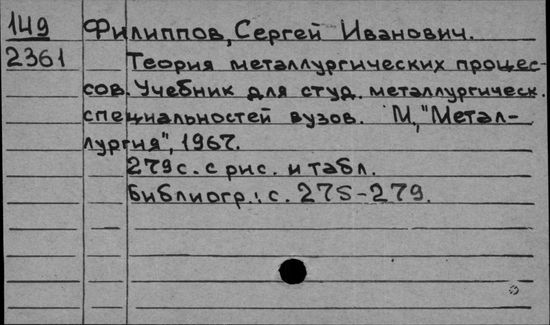 149 Филиппов, Сергей Иванович.
2361 Теория металлургических процес-
сов. Учебник для студ. металлургическ.
специальностей вузов. М., "Метал-
лургия", 1967.
279с. с рис. и табл.
Библиогр.: с. 275-279.